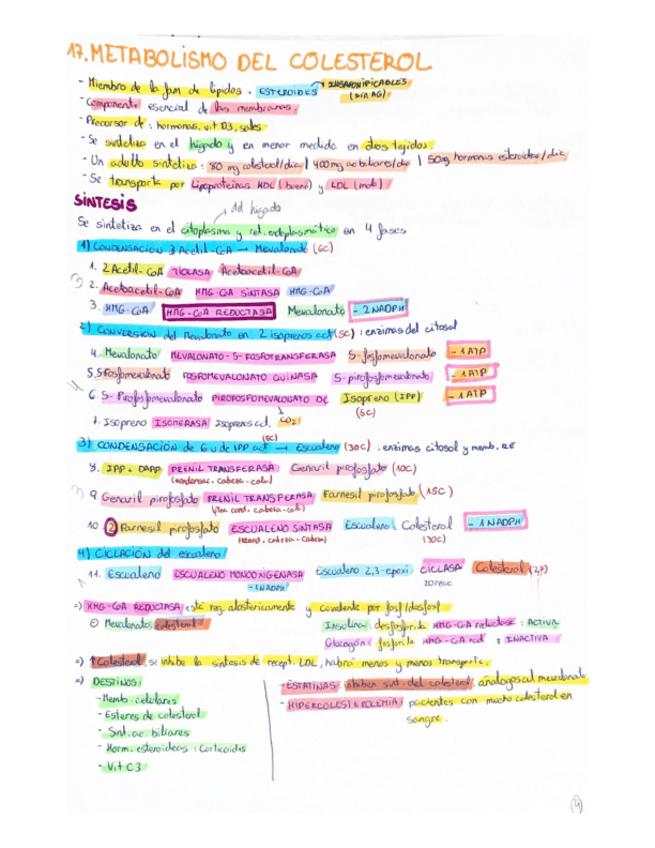 17. METABOLISMO DEL COLESTEROL
- Miembro de la fam de lípidos. ESTEROIDES → INSAPONIFICABLES (sin AG)
- Componente esencial de las membranas.
- Precursor de: hormonas, vit D3, sales
- Se sintetiza en el hígado y en menor medida en otros tejidos.
- Un adulto sintetiza: 80 mg colesterol/día | 400 mg ac biliares/día | 50mg hormonas esteroides/día
- Se transporta por Lipoproteínas HDL (bueno) y LDL (malo)
SÍNTESIS
del hígado
Se sintetiza en el citoplasma y ret. endoplasmático en 4 fases
1) CONDENSACION 3 Acetil-CoA → Mevalonato (6C)
1. 2 Acetil-CoA TIOLASA Acetoacetil-CoA
2. Acetoacetil-CoA HMG-COA SINTASA HMG-CoA
3. HMG-CoA HMG-COA REDUCTASA Mevalonato - 2NADPH
2) CONVERSIÓN del Mevalonato en 2 isoprenos act (5C): enzimas del citosol
4. Mevalonato MEVALONATO-5-FOSFOTRANSFERASA 5-fosfomevalonato - 1 ATP
5. 5 Fosfomevalonato FOSFOMEVALONATO QUINASA 5-pirofosfomevalonato - 1 ATP
6. 5-Pirofosfomevalonato PIROFOSFOMEVALONATO DE Isopreno (IPP) - 1 ATP
(5C)
7. Isopreno ISOMERASA Isopreno act. CO2
3) CONDENSACIÓN de 6 u de IPP act (5C) → Escualeno (30C): enzimas citosol y memb. RE
8. IPP + DAPP PRENIL TRANSFERASA Geranil pirofosfato (10C)
(condensac. cabeza-cola)
9 Geranil pirofosfato PRENIL TRANSFERASA Farnesil pirofosfato (15C)
(2ª cond. cabeza-cola)
10 2 Farnesil pirofosfato ESCUALENO SINTASA Escualeno: Colesterol - 1 NADPH
(cond. cabeza-cabeza) (30C)
4) CICLACIÓN del escualeno
11. Escualeno ESCUALENO MONOOXIGENASA Escualeno 2,3-epoxi CICLASA Colesterol (27)
-1NADPH
=) HMG-COA REDUCTASA está reg. alostericamente y covalente por fosf/desfosf
⊖ Mevalonato, colesterol Insulina: desfosforila HMG-CoA reductasa: ACTIVA
Glucagón: fosforila HMG-CoA red: INACTIVA
=) ↑Colesterol, se inhibe la sintesis de recept. LDL, habrá menos y menos transporte.
=) DESTINOS:
- Memb. celulares
- Esteres de colesterol
- Sint. ac. biliares
- Horm. esteroideas: Corticoides
- Vit C3
- ESTATINAS: inhiben sint. del colesterol, análogos al mevalonato
- HIPERCOLESTEROLEMIA: pacientes con mucho colesterol en sangre.
4